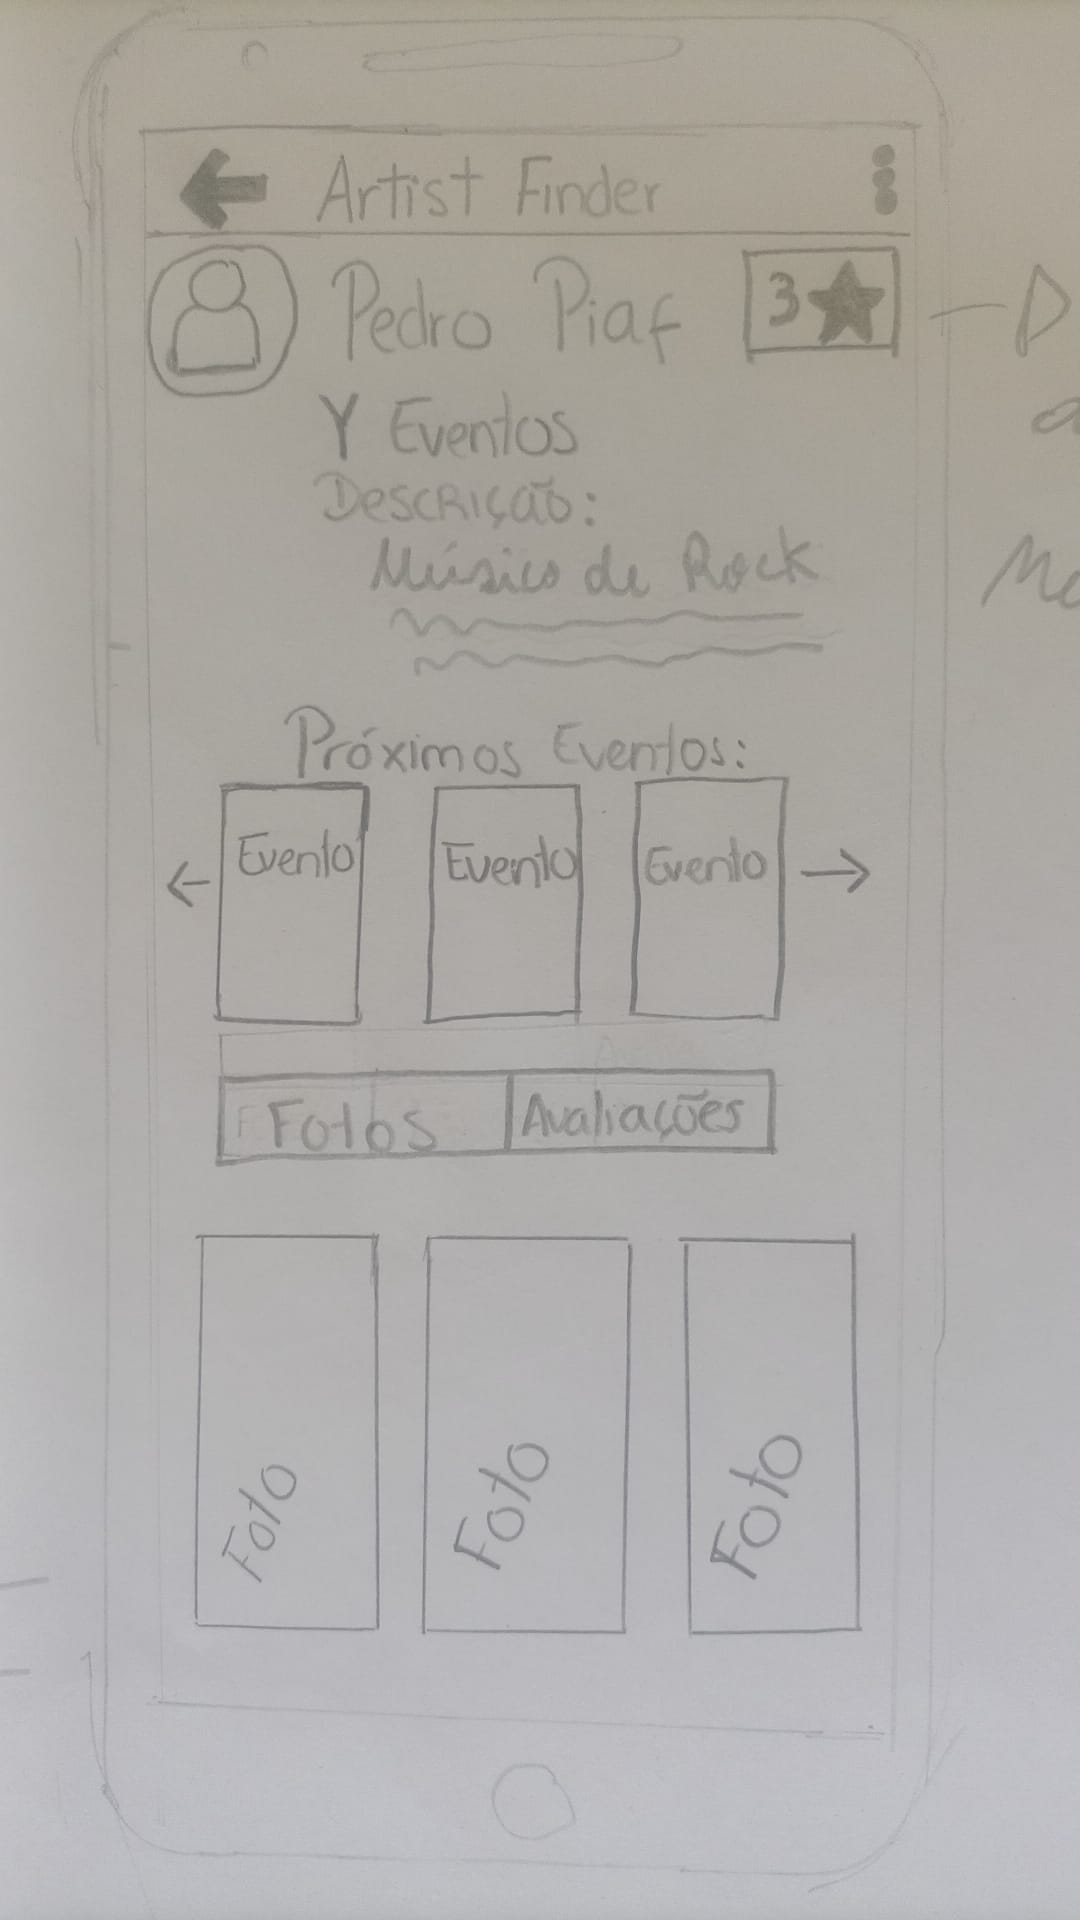 Artist Finder
Pedro Piaf 3
Y Eventos
Descrição:
Músico de Rock
Próximos Eventos:
Evento Evento Evento
Fotos Avaliações
Foto Foto Foto